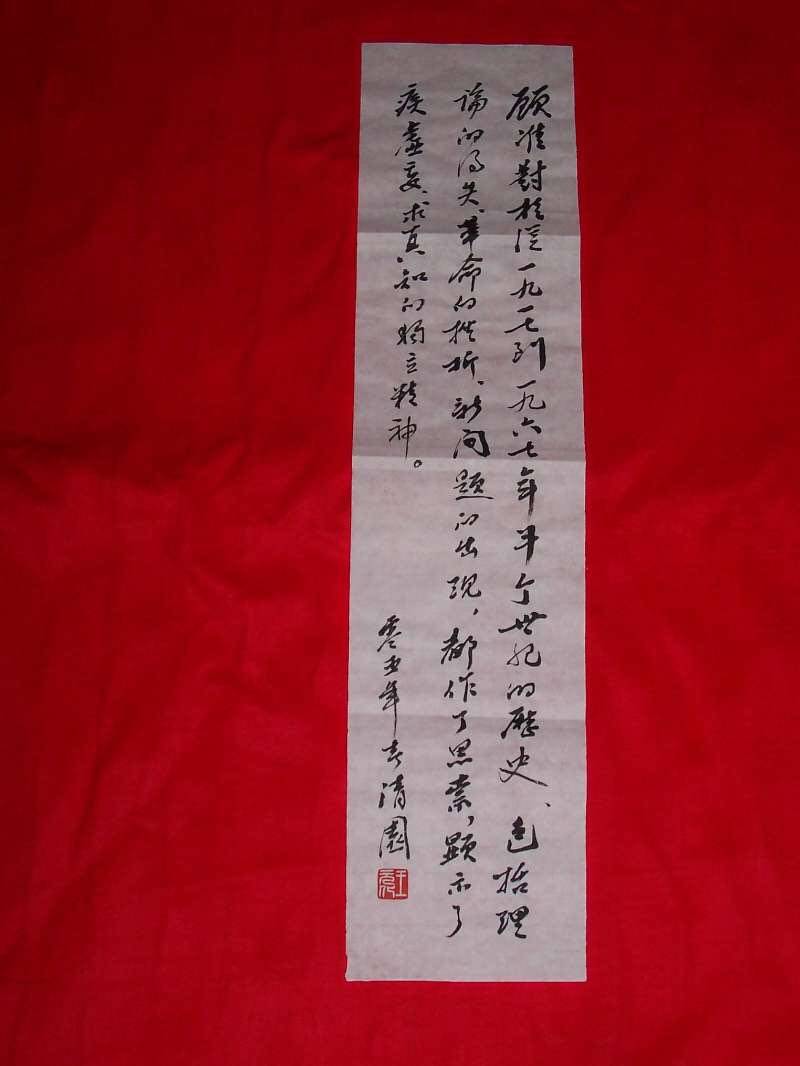 顧准對於從一九一七到一九六七年半个世紀的歷史、包括理
論的得失、革命的挫折、新问題的出現，都作了思索，顯示了
疾虛妄、求真知的獨立精神。
零五年春清園